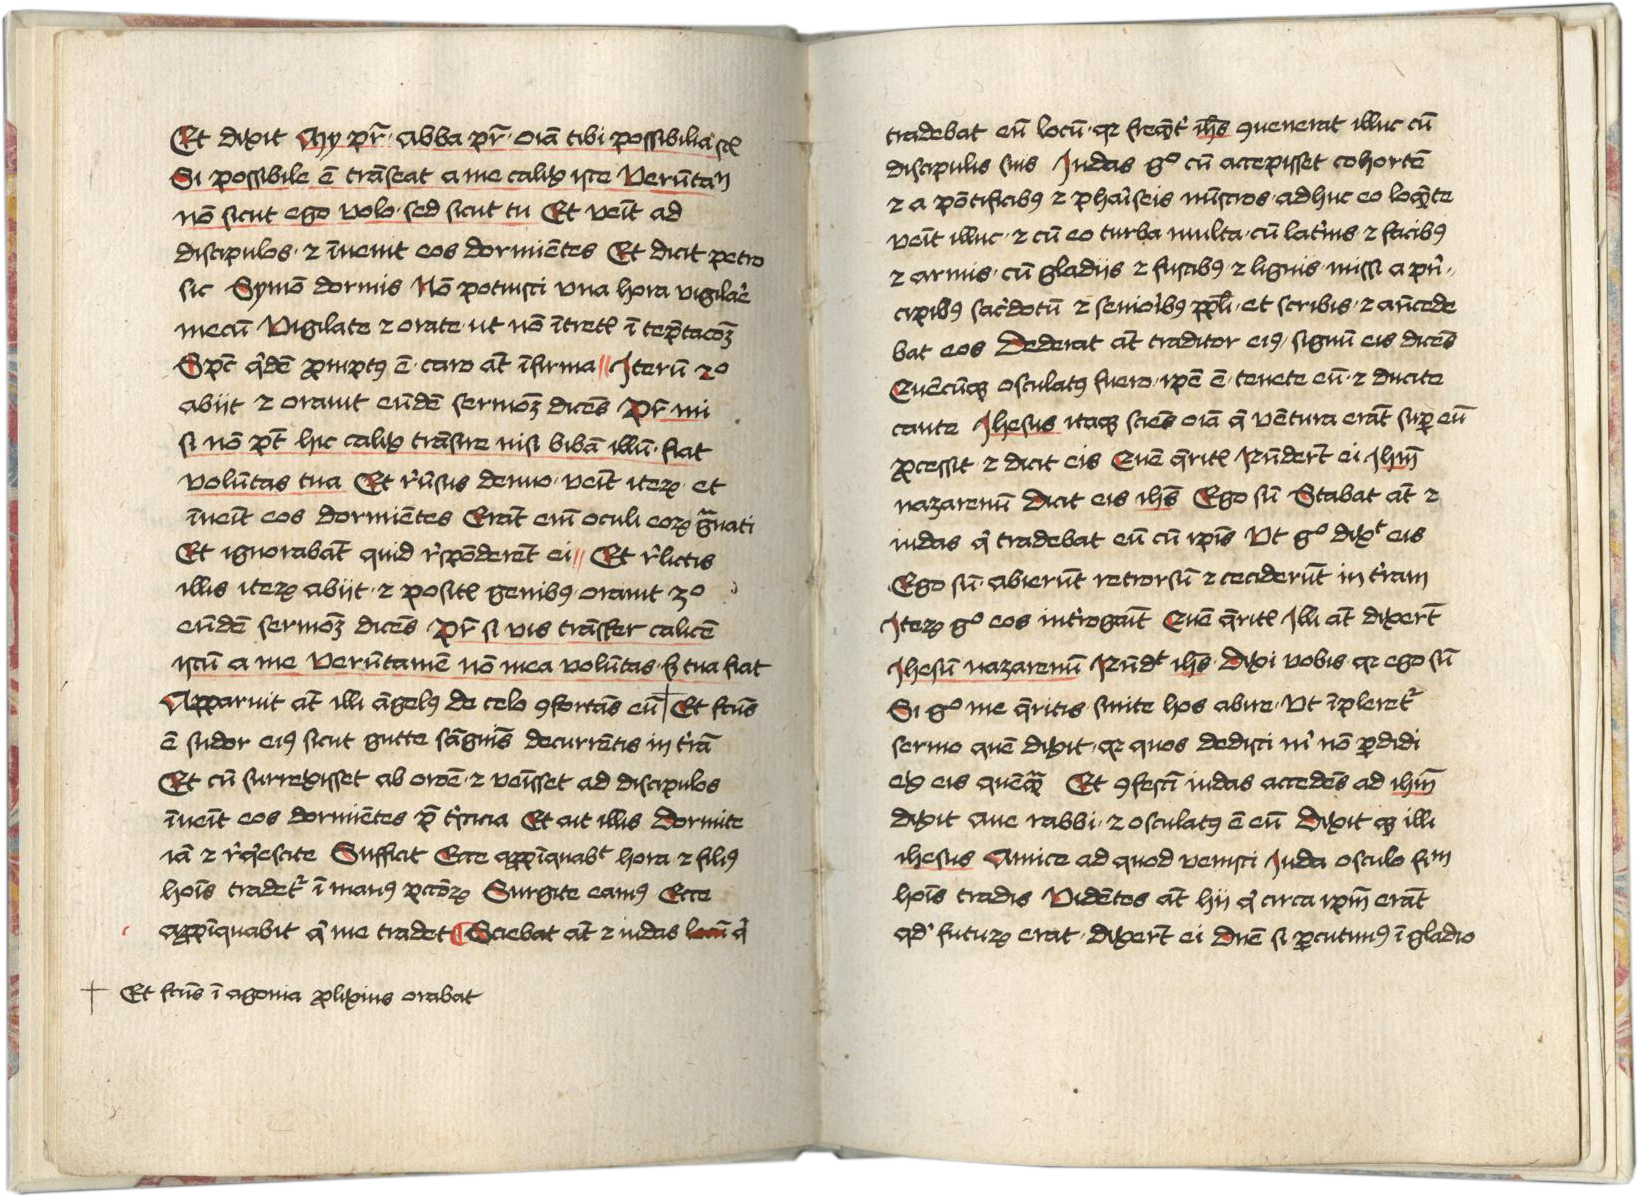 Et dixit My pr̃ · abba pr̃ · oı̄a tibi possibilia sūt
Si possibile ē trāseat a me calix iste Verūtan
nō sicut ego volo · sed sicut tu Et veı̄t ad
discipulos · ⁊ ı̄uenit eos dormiētes Et dicit petro
sic Symō dormis Nō potuisti vna hora vigilar̄e
mecū Vigilate ⁊ orate · ut nō ı̄tretꝭ ı̄ tēptacōꝫ
Spc̄ qͥdē ꝓmptꝰ ē · caro āt ı̄firma // Iterū 2º
abijt ⁊ orauit eūdē sermoꝫ dicēs Pr̃ mi
si nō pt̄ hic calix trāsire nisi bibā illū · fiat
volūtas tua Et rͬūsus denuo · veı̄t iteꝝ · et
ı̄ueı̄t eos dormiētes Erāt em̄ oculi eoꝝ gͣuati
Et ignorabāt quid rͬspōderēt ei // Et rͬlictis
illis iteꝝ abijt · ⁊ positꝭ genibꝰ · orauit 3º
eūdē sermoꝫ dicēs Pr̃ si vis trāsfer calicē
istū a me Verūtamē nō mea volūtas · sꝫ tua fiat
Apparuit āt illi āgelꝰ de celo ꝯfortās eū † Et fc̄us
ē sudor eiꝰ sicut gutte sāguı̄s decurrētis in tr̄ā
Et cū surrexisset ab orōe · ⁊ veı̄sset ad discipulos
ı̄ueı̄t eos dormiētes p̄ tͥsticia Et ait illis Dormite
iā ⁊ rͬqͥescite Sufficit Ecce apꝓı̄quabᵗ hora ⁊ filiꝰ
hoı̄s tradetᷣ ı̄ manꝰ pctōꝝ Surgite eamꝰ Ecce
apꝓı̄quabit qͥ me tradet ¶ Sciebat āt ⁊ iudas locū qͥ
† Et fc̄us ı̄ agonia ꝓlixius orabat
tradebat eū locū · qꝛ freqͣtͬ ihs̄ ꝯuenerat illuc cū
discipulis suis Judas gº cū accepisset cohortē
⁊ a pōtificibꝰ ⁊ phaı̄seis mı̄stros · adhuc eo loqͣte
veı̄t illuc · ⁊ cū eo turba multa · cū latͬnis ⁊ facibꝰ
⁊ armis · cū gladijs ⁊ fustibꝰ ⁊ lignis · missi a pͥn ·
cipibꝰ sacͬdotū ⁊ seniorͥbꝰ ppl̄i · et scribis · ⁊ aн̄cede
bat eos Dederat āt traditor eiꝰ / signū eis dicēs
Quēcūqꝫ osculatꝰ fuero · ipē ē · tenete eū · ⁊ ducite
caute Jhesus itaqꝫ sciēs oı̄a q̄ vētura erāt suꝑ eū
ꝓcessit · ⁊ dicit eis Quē q̄ritꝭ Rn̄derūt ei Jhm̄
nazarenū Dicit eis ihs̄ Ego sū Stabat āt ⁊
iudas qͥ tradebat eū cū ipı̄s Vt gº dixᵗ eis
Ego sū · abierūt retrorsū ⁊ ceciderūt in tͬram
Iteꝝ gº eos intͬrogaūt Quē q̄ritꝭ Illi āt dixerūt
Jhesū nazarenū Rn̄dᵗ ihs̄ · Dixi vobis qꝛ ego sū
Si gº me q̄ritis · sinite hos abire · Vt ı̄pleretᷣ
sermo quē dixit · qꝛ quos dedisti mͥ nō ꝑdidi
ex eis quēqͣꝫ Et ꝯfestı̄ iudas accedēs ad ihm̄
dixit aue rabbi · ⁊ osculatꝰ ē eū Dixit qꝫ illi
ihesus Amice ad quod venisti Juda osculo fiᵐ
hoı̄s tradis Vidētes āt hij qͥ circa ipm̄ erāt
qd̕ futuꝝ erat · dixerūt ei Dn̄e si ꝑcutimꝰ ı̄ gladio